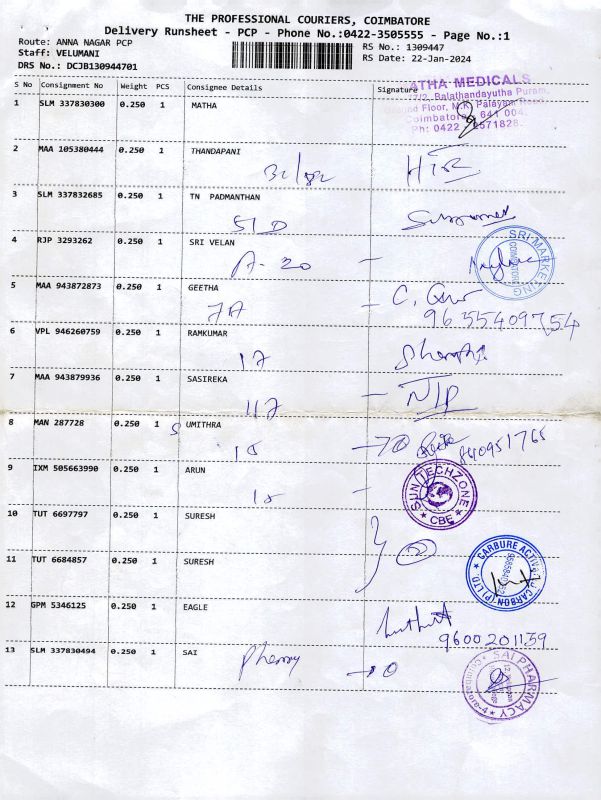 THE PROFESSIONAL COURIERS, COIMBATORE
Delivery Runsheet - PCP - Phone No.:0422-3505555 - Page No.:1
Route: ANNA NAGAR PCP
Staff: VELUMANI
DRS No.: DCJB130944701
RS No.: 1309447
RS Date: 22-Jan-2024
S No Consignment No Weight PCS Consignee Details Signature
ATHA MEDICALS
Balathandayutha Puram,
Floor, M.K. Palayam
Coimbatore - 641 004.
Ph: 0422 2571828
1 SLM 337830300 0.250 1 MATHA
2 MAA 105380444 0.250 1 THANDAPANI
3 SLM 337832685 0.250 1 TN PADMANTHAN
51 D
4 RJP 3293262 0.250 1 SRI VELAN
A-20 -
SRI MARKETING COIMBATORE
5 MAA 943872873 0.250 1 GEETHA
7A -
9655409754
6 VPL 946260759 0.250 1 RAMKUMAR
17
7 MAA 943879936 0.250 1 SASIREKA
117 -
8 MAN 287728 0.250 1 S UMITHRA
15
9 IXM 505663990 0.250 1 ARUN
SUN TECHZONE CBE
10 TUT 6697797 0.250 1 SURESH
2
11 TUT 6684857 0.250 1 SURESH
CARBURE ACTIVATED CARBON (P) LTD
12 GPM 5346125 0.250 1 EAGLE
9600201139
13 SLM 337830494 0.250 1 SAI
SAI PHARMACY